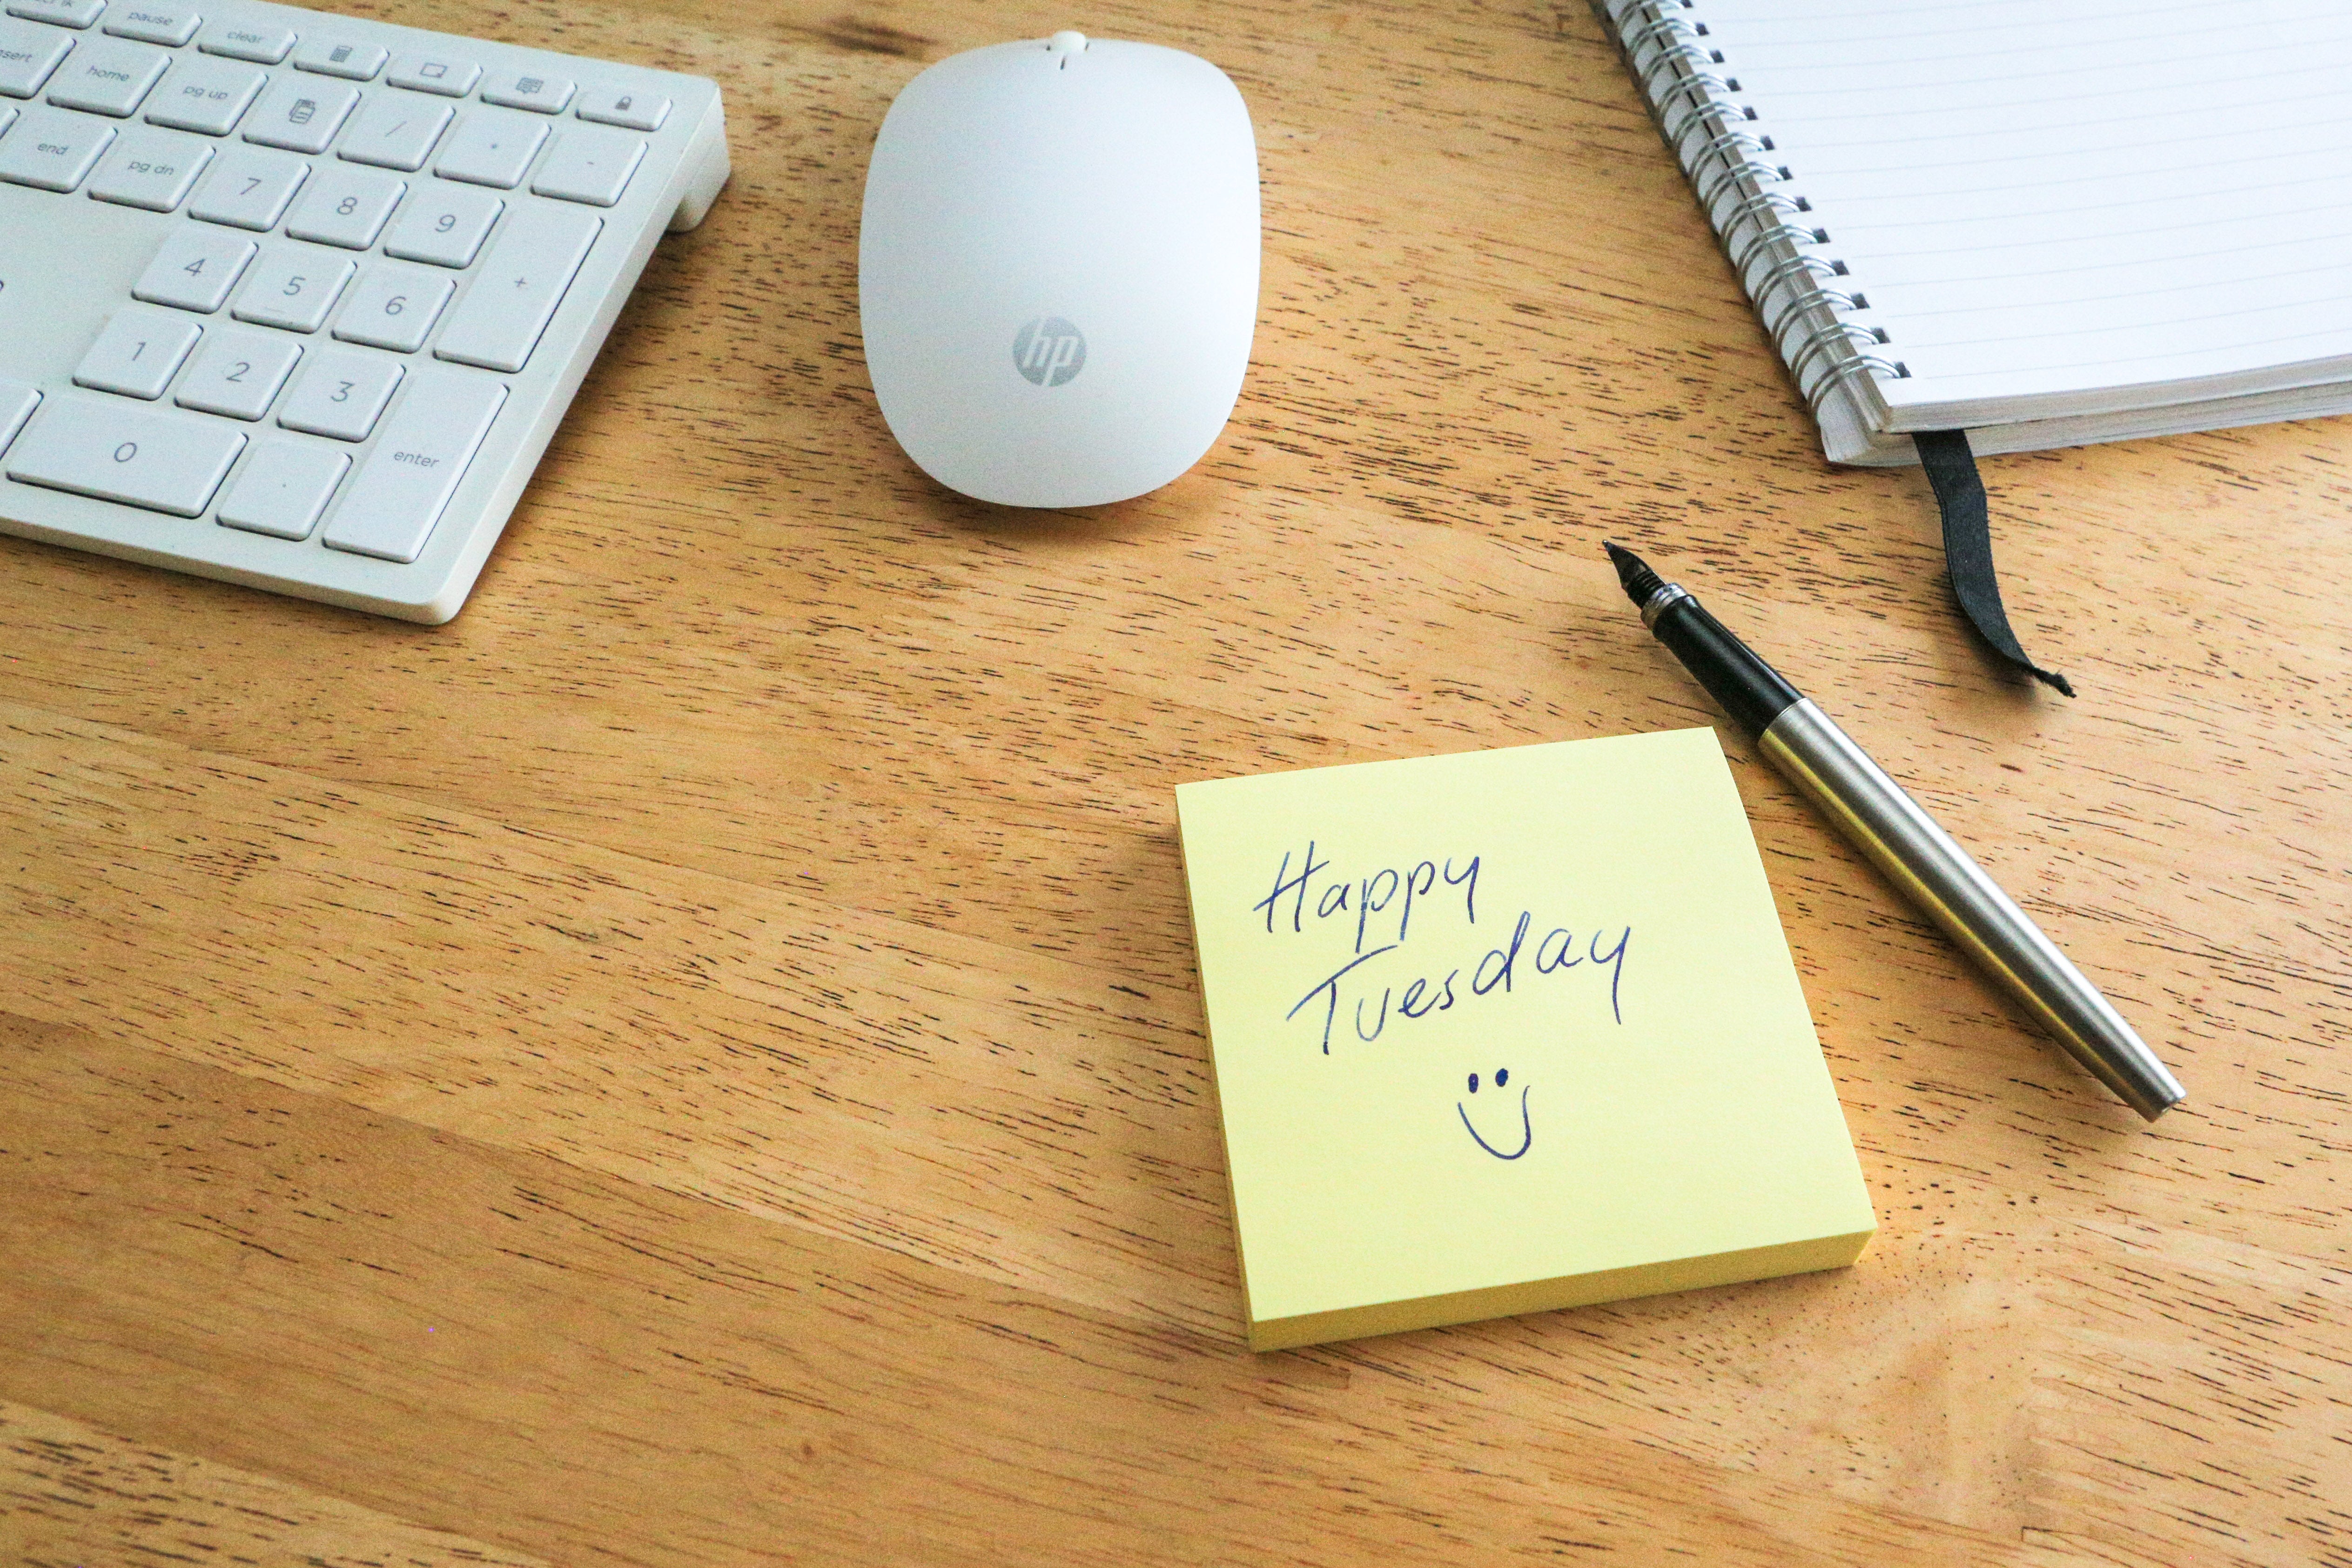 pause
clear
insert
home
pg up
/
*
-
end
pg dn
7
8
9
+
4
5
6
1
2
3
0
.
enter
hp
Happy
Tuesday